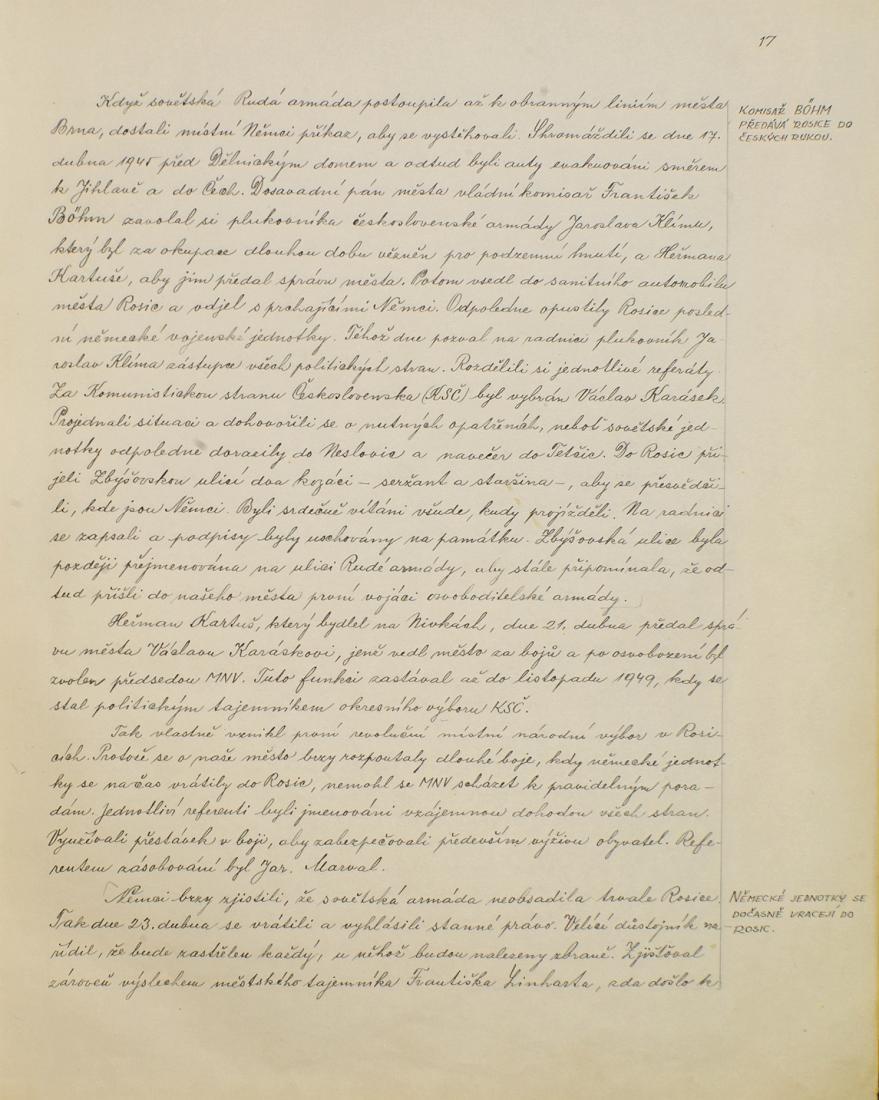 17
Když sovětská Rudá armáda postoupila až k obranným liniím města
Brna, dostali místní Němci příkaz, aby se vystěhovali. Shromáždili se dne 17.
dubna 1945 před Dělnickým domem a odtud byli auty evakuováni směrem
k Jihlavě a do Čech. Dosavadní pán města vládní komisař František
Böhm zavolal si plukovníka československé armády Jaroslava Klímu,
který byl za okupace dlouhou dobu vězněn pro podzemní hnutí, a Heřmana
Kartuše, aby jim předal správu města. Potom vsedl do sanitního automobilu
města Rosic a odjel s prchajícími Němci. Odpoledne opustily Rosice posled-
ní německé vojenské jednotky. Téhož dne pozval na radnici plukovník Ja-
roslav Klíma zástupce všech politických stran. Rozdělili si jednotlivé referáty.
Za Komunistickou stranu Československa (KSČ) byl vybrán Václav Karásek.
Projednali situaci a dohovořili se o nutných opatřeních, neboť sovětské jed-
notky odpoledne dorazily do Neslovic a navečer do Tetčic. Do Rosic při-
jeli Zbýšovskou ulicí dva kozáci – seržant a staršina –, aby se přesvědči-
li, kde jsou Němci. Byli srdečně vítáni všude, kudy projížděli. Na radnici
se zapsali a podpisy byly uschovány na památku. Zbýšovská ulice byla
později přejmenována na ulici Rudé armády, aby stále připomínala, že od-
tud přišli do našeho města první vojáci osvoboditelské armády.
Heřman Kartuš, který bydlel na Nivkách, dne 21. dubna předal sprá-
vu města Václavu Karáskovi, jenž vedl město za bojů a po osvobození byl
zvolen předsedou MNV. Tuto funkci zastával až do listopadu 1949, kdy se
stal politickým tajemníkem okresního výboru KSČ.
Tak vlastně vznikl první revoluční místní národní výbor v Rosi-
cích. Protože se o naše město brzy rozpoutaly dlouhé boje, kdy německé jednot-
ky se načas vrátily do Rosic, nemohl se MNV scházet k pravidelným pora-
dám. Jednotliví referenti byli jmenováni vzájemnou dohodou všech stran.
Využívali přestávek v boji, aby zabezpečovali především výživu obyvatel. Refe-
rentem zásobování byl Jar. Marval.
Němci brzy zjistili, že sovětská armáda neobsadila trvale Rosice.
Tak dne 23. dubna se vrátili a vyhlásili stanné právo. Velící důstojník na-
řídil, že bude zastřelen každý, u něhož budou nalezeny zbraně. Zjišťoval
zároveň výslechem městského tajemníka Františka Linharta, zda došlo k
KOMISAŘ BÖHM
PŘEDÁVÁ ROSICE DO
ČESKÝCH RUKOU.
NĚMECKÉ JEDNOTKY SE
DOČASNĚ VRACEJÍ DO
ROSIC.